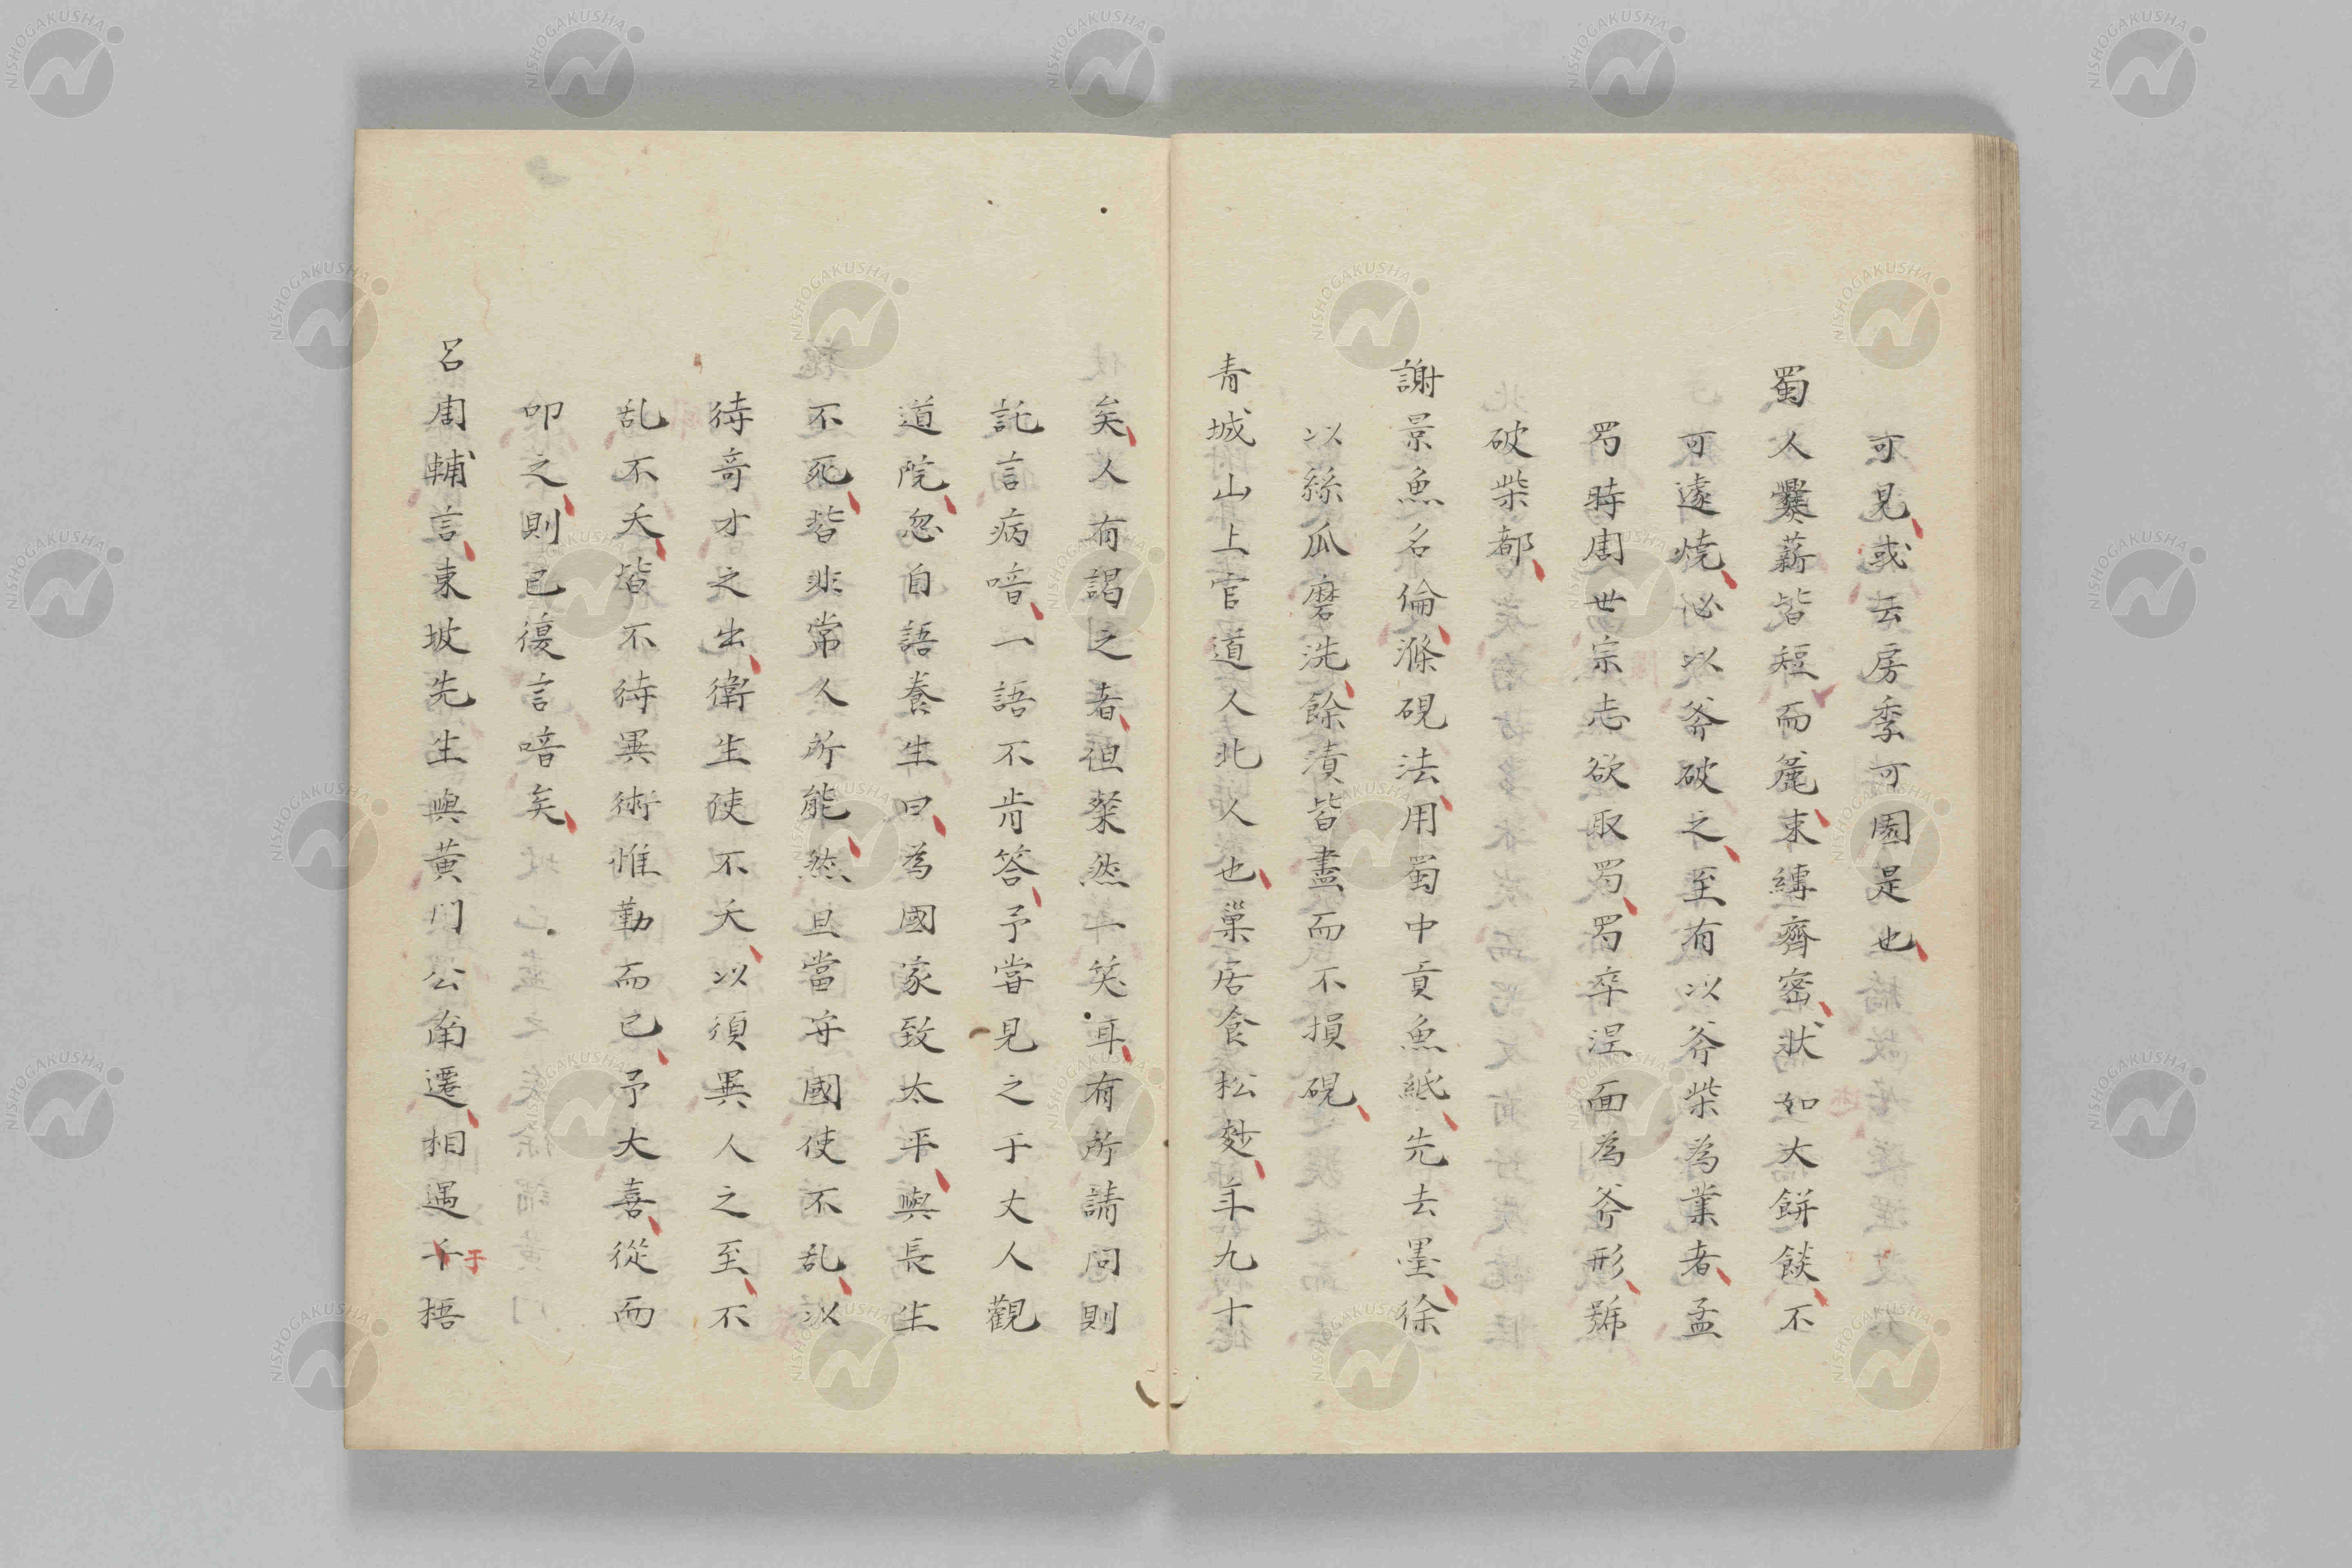 可見或云房季可園是也
蜀人爨薪皆短而麄束縳齊密狀如大餅餤不
可遽燒必以斧破之至有以斧柴為業者孟
蜀時周世宗志欲取蜀蜀卒涅面為斧形號
破柴都
謝景魚名倫滌硯法用蜀中貢魚紙先去墨徐
以絲瓜磨洗餘漬皆盡而不損硯
青城山上官道人北人也巢居食松麨年九十
矣人有謁之者但粲然一笑耳有所請問則
託言病喑一語不肯答予嘗見之于丈人觀
道院忽自語養生曰為國家致太平與長生
不死皆非常人所能然且當守國使不乱以
待奇才之出衛生使不夭以須異人之至不
乱不夭皆不待異術惟勤而已予大喜從而
叩之則已復言喑矣
呂周輔言東坡先生與黄門公南遷相遇千梧
于
NISHOGAKUSHA